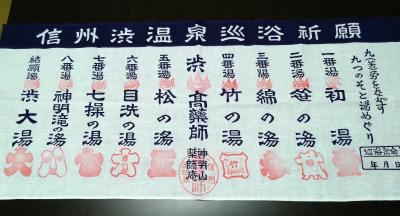 信州渋温泉巡浴祈願
九(苦)労をながす
九つのそと湯めぐり
巡浴祈念
年月日
一番湯 初湯
二番湯 笹の湯
三番湯 綿の湯
四番湯 竹の湯
渋高薬師
神明山
薬師庵
五番湯 松の湯
六番湯 目洗の湯
七番湯 七操の湯
八番湯 神明滝の湯
結願湯 渋大湯